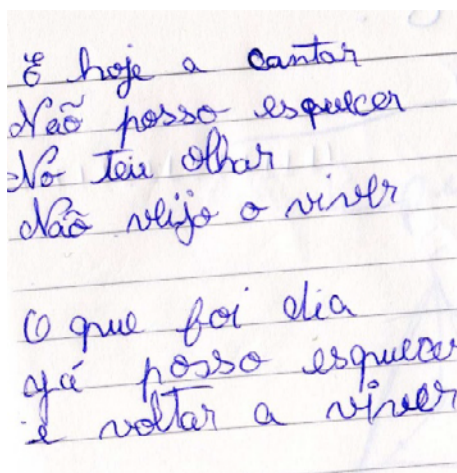 E hoje a cantar
Não posso esquecer
No teu olhar
Não vejo o viver
O que foi dia
Já posso esquecer
e voltar a viver